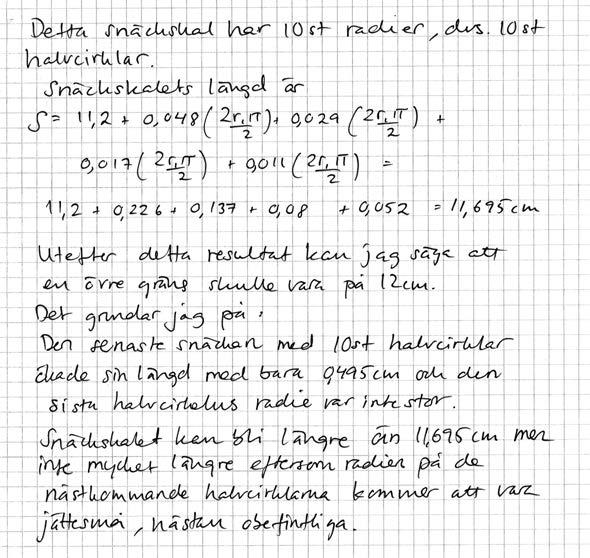 Detta snäckskal har 10 st radier, dvs. 10 st
halvcirklar.
Snäckskalets längd är
S = 11,2 + 0,048 (2r₁π/2) + 0,029 (2r₁π/2) +
0,017 (2r₁π/2) + 0,011 (2r₁π/2) =
11,2 + 0,226 + 0,137 + 0,08 + 0,052 = 11,695 cm
Utefter detta resultat kan jag säga att
en övre gräns skulle vara på 12 cm.
Det grundar jag på:
Den senaste snäckan med 10 st halvcirklar
ökade sin längd med bara 0,495 cm och den
sista halvcirkelns radie var inte stor.
Snäckskalet kan bli längre än 11,695 cm men
inte mycket längre eftersom radien på de
nästkommande halvcirklarna kommer att vara
jättesmå, nästan obefintliga.